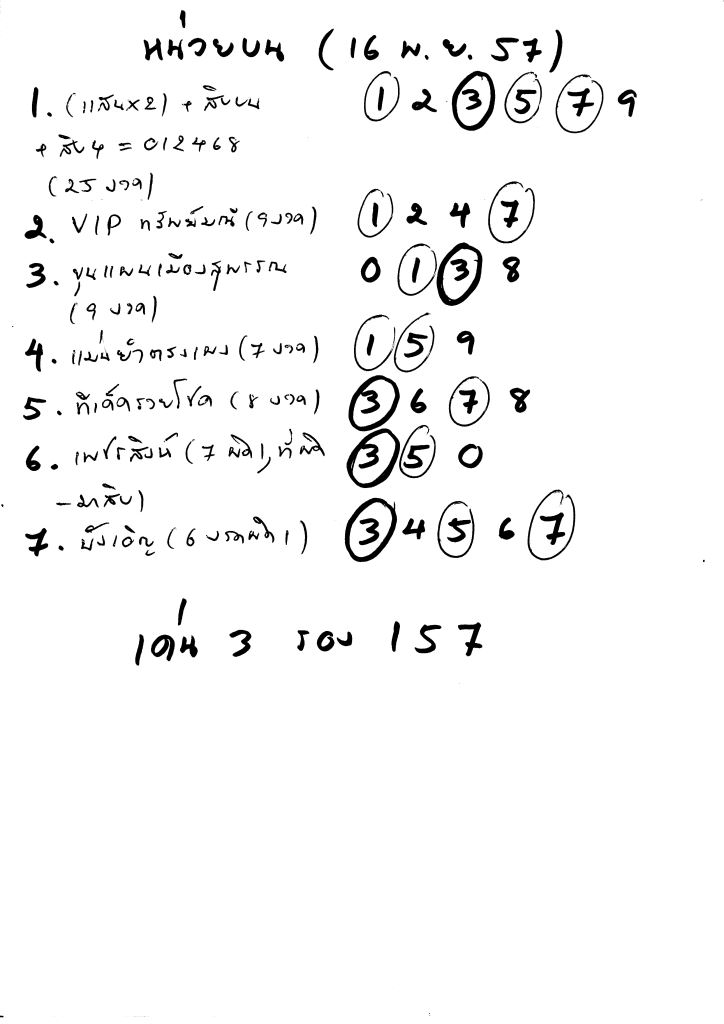 หน่วยบน (16 พ.ย. 57)
1. (แสนx2) + สิบบน 1 2 3 5 7 9
+ สิบ4 = 012468
(25 งวด)
2. VIP ทรัพย์มณี (9งวด) 1 2 4 7
3. ขุนแผนเมืองสุพรรณ 0 1 3 8
(9 งวด)
4. แม่นยำตรงเผง (7 งวด) 1 5 9
5. ทีเด็ดรวยโชค (8 งวด) 3 6 7 8
6. เพชรสิงห์ (7 ผิด1, ที่ผิด 3 5 0
- มาสิบ)
7. บังเอิญ (6 งวดผิด1) 3 4 5 6 7
เด่น 3 รอง 1 5 7